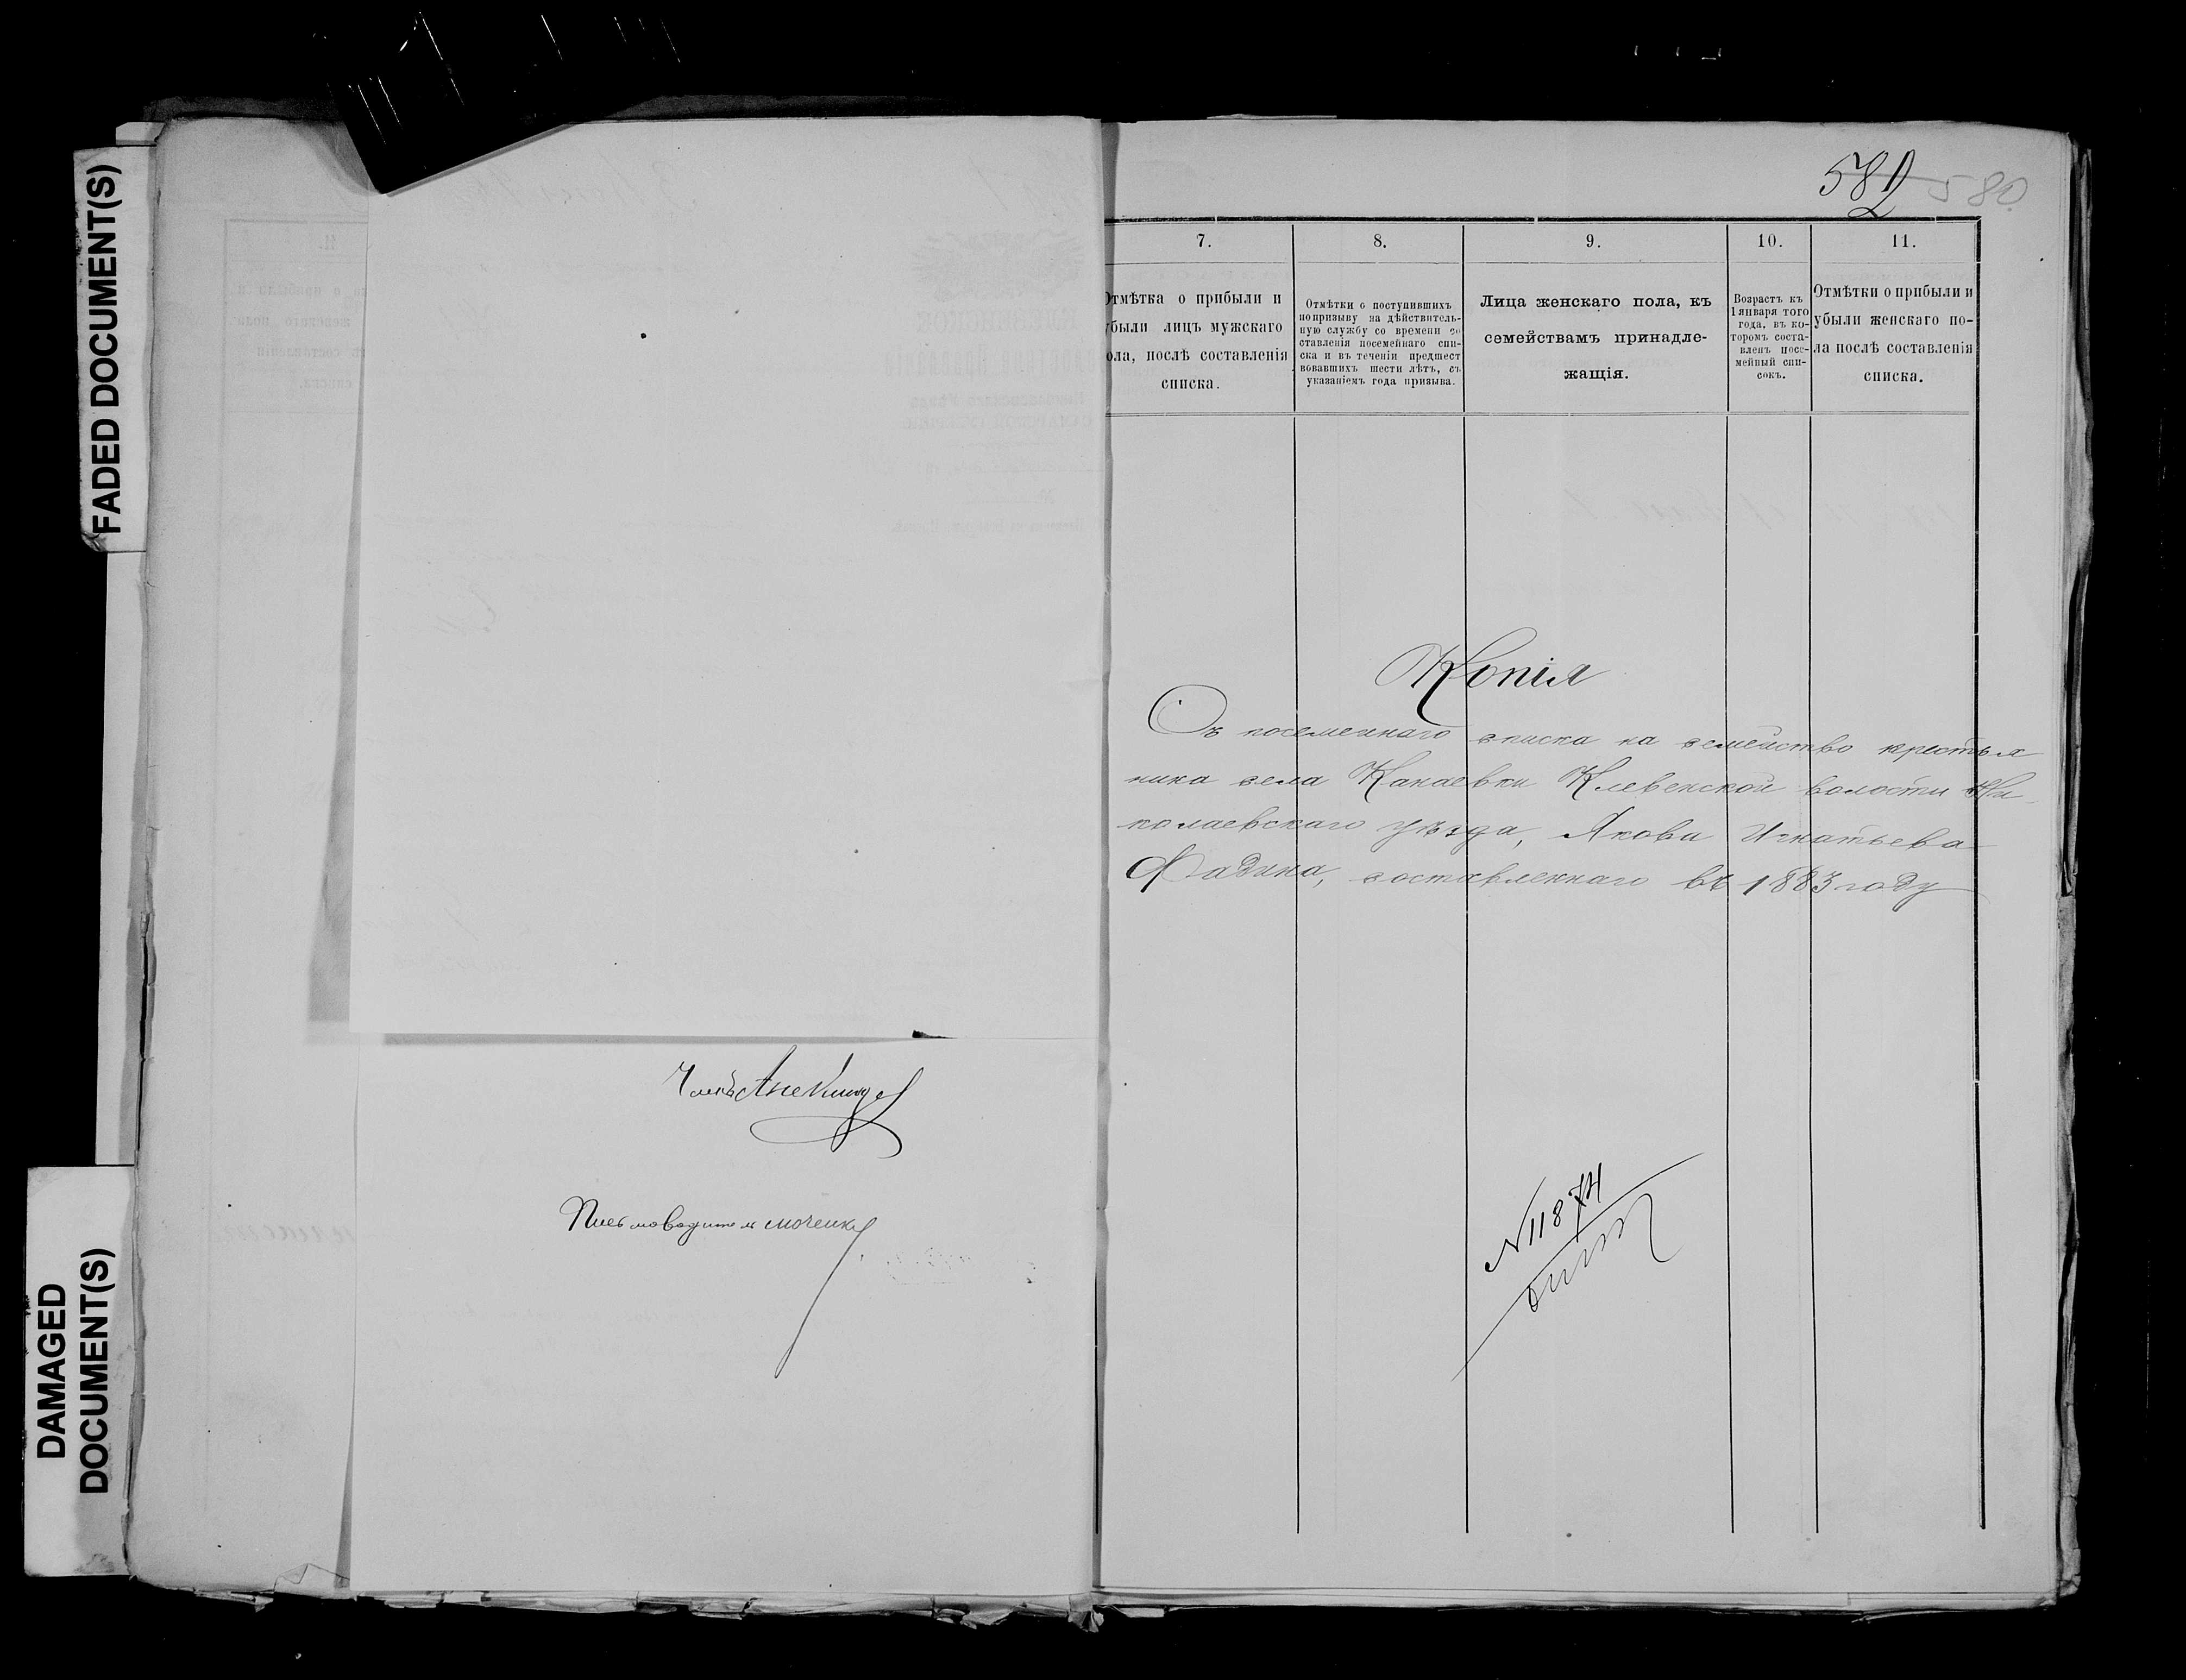 FADED DOCUMENT(S)
DAMAGED
DOCUMENT(S)
Членъ
Письмоводитель
582 580
7.
Отмѣтка о прибыли и
убыли лицъ мужскаго
пола, послѣ составленія
списка.
8.
Отмѣтки о поступившихъ
по призыву на дѣйствитель-
ную службу со времени со
ставленія посемейнаго спи-
ска и въ теченіи предшест
вовавшихъ шести лѣтъ, съ
указаніемъ года призыва.
9.
Лица женскаго пола, къ
семействамъ принадле-
жащія.
10.
Возрастъ къ
1 января того
года, въ ко-
торомъ соста-
вленъ посе-
мейный спи-
сокъ.
11.
Отмѣтки о прибыли и
убыли женскаго по-
ла послѣ составленія
списка.
Копія
Съ посемейнаго списка на семейство крестья
нина села Канаевки Клевенской волости Ни-
колаевскаго уѣзда, Якова Игнатьева
Фадина, составленнаго въ 1883 году
№ 11874